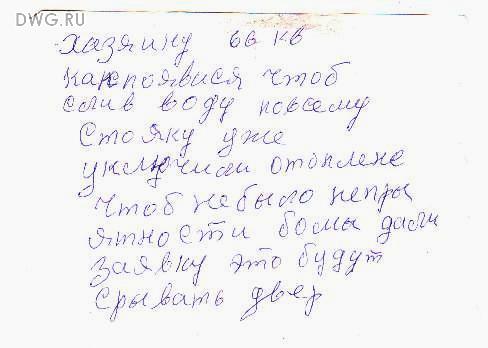 DWG.RU
Хазяину 66 кв
Как появися чтоб
слив воду повсему
стояку уже
уключили отоплене
чтоб небыло непры
ятности бомы дали
заявку это будут
срывать двер